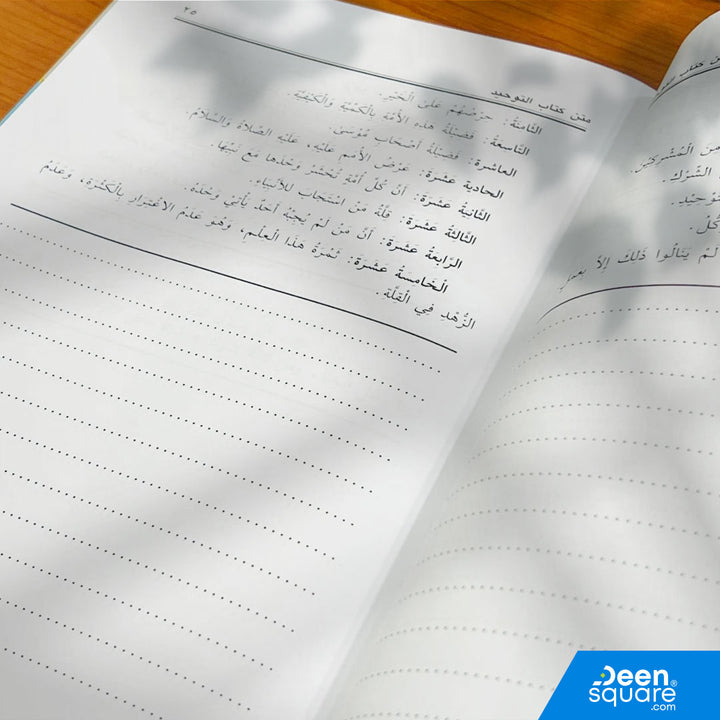 متن كتاب التوحيد
٢٥
الثَّامِنَةُ: حِرْصُهُمْ عَلَى الْخَيْرِ.
التَّاسِعَةُ: فَضِيلَةُ هَذِهِ الأُمَّةِ بِالْكَمِّيَّةِ وَالْكَيْفِيَّةِ.
العاشرة: فَضِيلَةُ أَصْحَابِ مُوسَى.
الحادية عشرة: عَرْضُ الأُمَمِ عَلَيْهِ، عَلَيْهِ الصَّلَاةُ وَالسَّلَامُ.
الثَّانِيَةَ عَشْرَةَ: أَنَّ كُلَّ أُمَّةٍ تُحْشَرُ وَحْدَهَا مَعَ نَبِيِّهَا.
الثَّالِثَةَ عَشْرَةَ: قِلَّةُ مَنْ اسْتَجَابَ لِلأَنْبِيَاءِ.
الرَّابِعَةَ عَشْرَةَ: أَنَّ مَنْ لَمْ يُجِبْهُ أَحَدٌ يَأْتِي وَحْدَهُ.
الْخَامِسَةَ عَشْرَةَ: ثَمَرَةُ هَذَا الْعِلْمِ، وَهُوَ عَدَمُ الاغْتِرَارِ بِالْكَثْرَةِ، وَعَدَمُ
الزُّهْدِ فِي الْقِلَّةِ.
متن كتاب
مِنَ الْمُشْرِكِينَ.
الشِّرْكِ.
لَمْ يَنَالُوا ذَلِكَ إِلاَّ بِعَمَلٍ
Deen
square®
.com